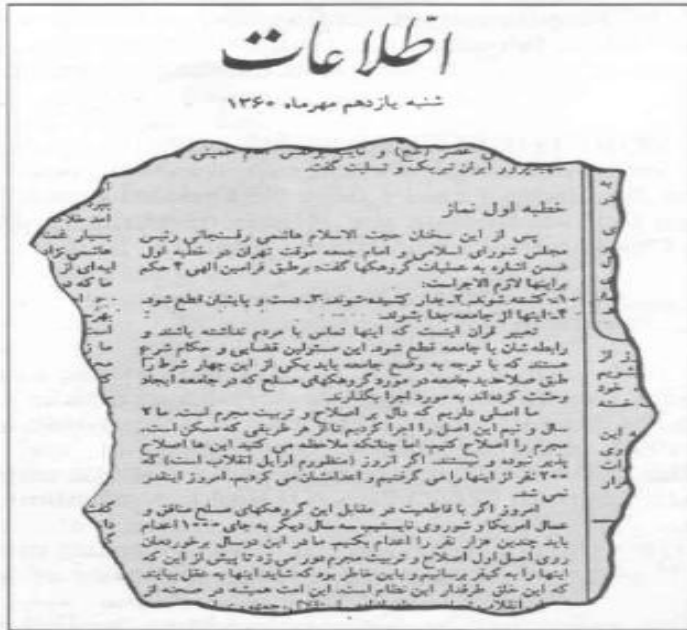 اطلاعات
شنبه یازدهم مهرماه ۱۳۶۰
شهیدپرور ایران تبریک و تسلیت گفت.
خطبه اول نماز
پس از این سخنان حجت الاسلام هاشمی رفسنجانی رئیس
مجلس شورای اسلامی و امام جمعه موقت تهران در خطبه اول
ضمن اشاره به عملیات گروهکها گفت: برطبق فرامین الهی ۴ حکم
براینها لازم الاجراست:
۱ـ کشته شوند. ۲ـ بدار کشیده شوند. ۳ـ دست و پایشان قطع شود.
۴ـ اینها از جامعه جدا بشوند.
تعبیر قرآن اینست که اینها تماس با مردم نداشته باشند و
رابطه شان با جامعه قطع شود. این مسئولین قضایی و حکام شرع
هستند که با توجه به وضع جامعه باید یکی از این چهار شرط را
طبق صلاحدید جامعه در مورد گروهکهای مسلح که در جامعه ایجاد
وحشت کرده‌اند به مورد اجرا بگذارند.
ما اصلی داریم که دال بر اصلاح و تربیت مجرم است. ما ۲
سال و نیم این اصل را اجرا کردیم تا از هر طریقی که ممکن است.
مجرم را اصلاح کنیم اما چنانکه ملاحظه می کنید این ها اصلاح
پذیر نبوده و نیستند. اگر آنروز (منظورم اوایل انقلاب است) که
۲۰۰ نفر از اینها را می گرفتیم و اعدامشان می کردیم. امروز اینقدر
نمی شد.
امروز اگر با قاطعیت در مقابل این گروهکهای مسلح منافق و
عمال آمریکا و شوروی نایستیم. سه سال دیگر به جای ۱۰۰۰ اعدام
باید چندین هزار نفر را اعدام بکنیم. ما در این دوسال برخوردمان
روی اصل اول اصلاح و تربیت مجرم دور می زد تا پیش از این که
اینها را به کیفر برسانیم و باین خاطر بود که شاید اینها به عقل بیایند
که این خلق طرفدار این نظام است. این امت همیشه در صحنه از